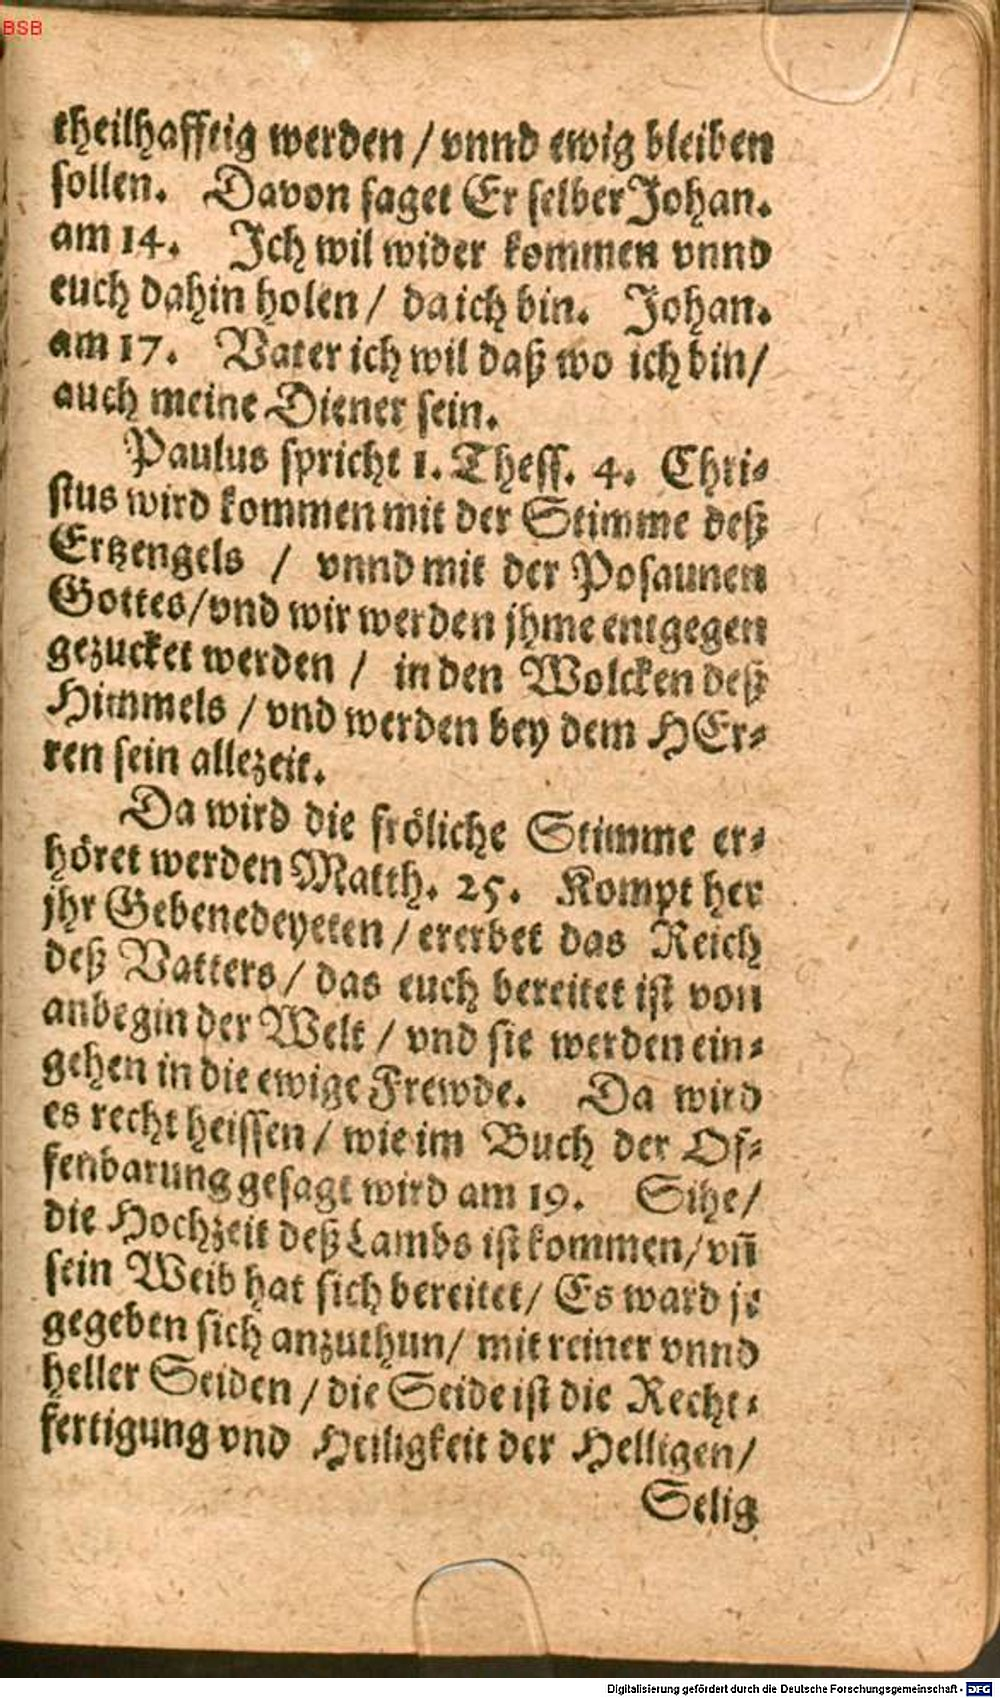 BSB
theilhafftig werden / vnnd ewig bleiben
sollen. Davon saget Er selber Johan.
am 14. Ich wil wider kommen vnnd
euch dahin holen / da ich bin. Johan.
am 17. Vater ich wil daß wo ich bin /
auch meine Diener sein.
Paulus spricht 1. Thess. 4. Chri-
stus wird kommen mit der Stimme deß
Ertzengels / vnnd mit der Posaunen
Gottes / vnd wir werden jhme entgegen
gezucket werden / in den Wolcken deß
Himmels / vnd werden bey dem HEr-
ren sein allezeit.
Da wird die fröliche Stimme er-
höret werden Matth. 25. Kompt her
jhr Gebenedeyeten / ererbet das Reich
deß Vatters / das euch bereitet ist von
anbegin der Welt / vnd sie werden ein-
gehen in die ewige Frewde. Da wird
es recht heissen / wie im Buch der Of-
fenbarung gesagt wird am 19. Sihe /
die Hochzeit deß Lambs ist kommen / vn̄
sein Weib hat sich bereitet / Es ward jr
gegeben sich anzuthun / mit reiner vnnd
heller Seiden / die Seide ist die Recht-
fertigung vnd Heiligkeit der Helligen /
Selig
Digitalisierung gefördert durch die Deutsche Forschungsgemeinschaft - DFG